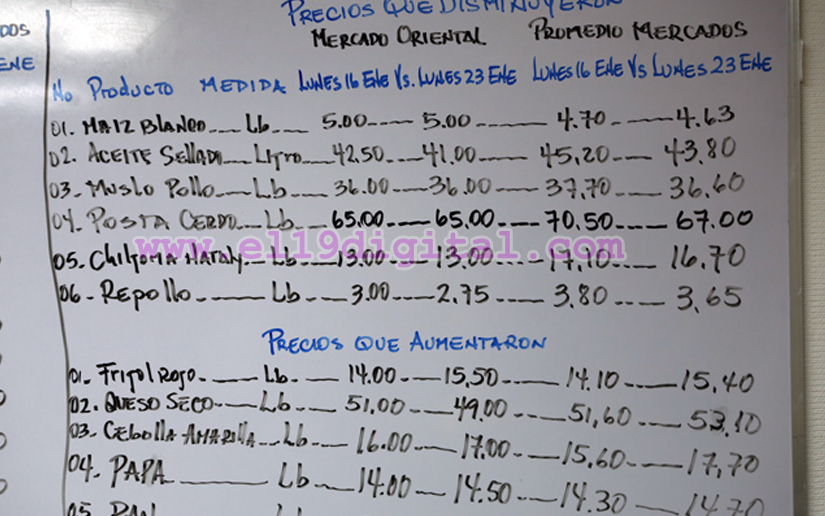 DOS
ENE
PRECIOS QUE DISMINUYERON
MERCADO ORIENTAL PROMEDIO MERCADOS
No PRODUCTO MEDIDA LUNES 16 ENE Vs. LUNES 23 ENE LUNES 16 ENE Vs LUNES 23 ENE
01. MAIZ BLANCO Lb 5.00 5.00 4.70 4.63
02. ACEITE SELLADO LITRO 42.50 41.00 45,20 43.80
03. MUSLO POLLO Lb 36.00 36.00 37,70 36,60
04. POSTA CERDO Lb 65,00 65.00 70.50 67.00
www.el19digital.com
05. CHILTOMA NATAN Lb 13.00 13.00 17,10 16,70
06- REPOLLO Lb 3.00 2.75 3.80 3,65
PRECIOS QUE AUMENTARON
01- FRIJOL ROJO Lb. 14.00 15,50 14.10 15,40
02. QUESO SECO Lb 51,00 49.00 51,60 53,10
03- CEBOLLA AMARILLA Lb 16.00 17.00 15,60 17,70
04. PAPA Lb 14.00 14.50 14.30 14.70
05 PAN Lb